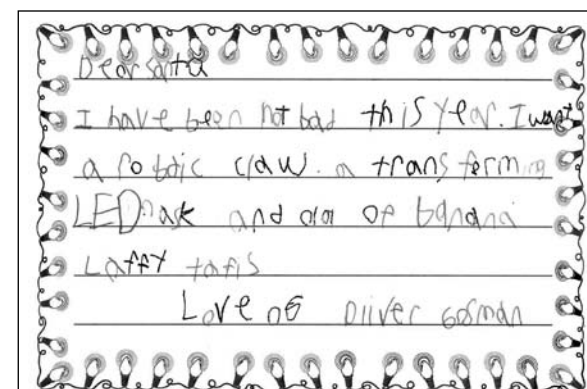 Dear Santa
I have been not bad this year. I want
a robotic claw. a trans ferming
LED mask and a of banana
Laffy tafis
Love Oliver Gorman